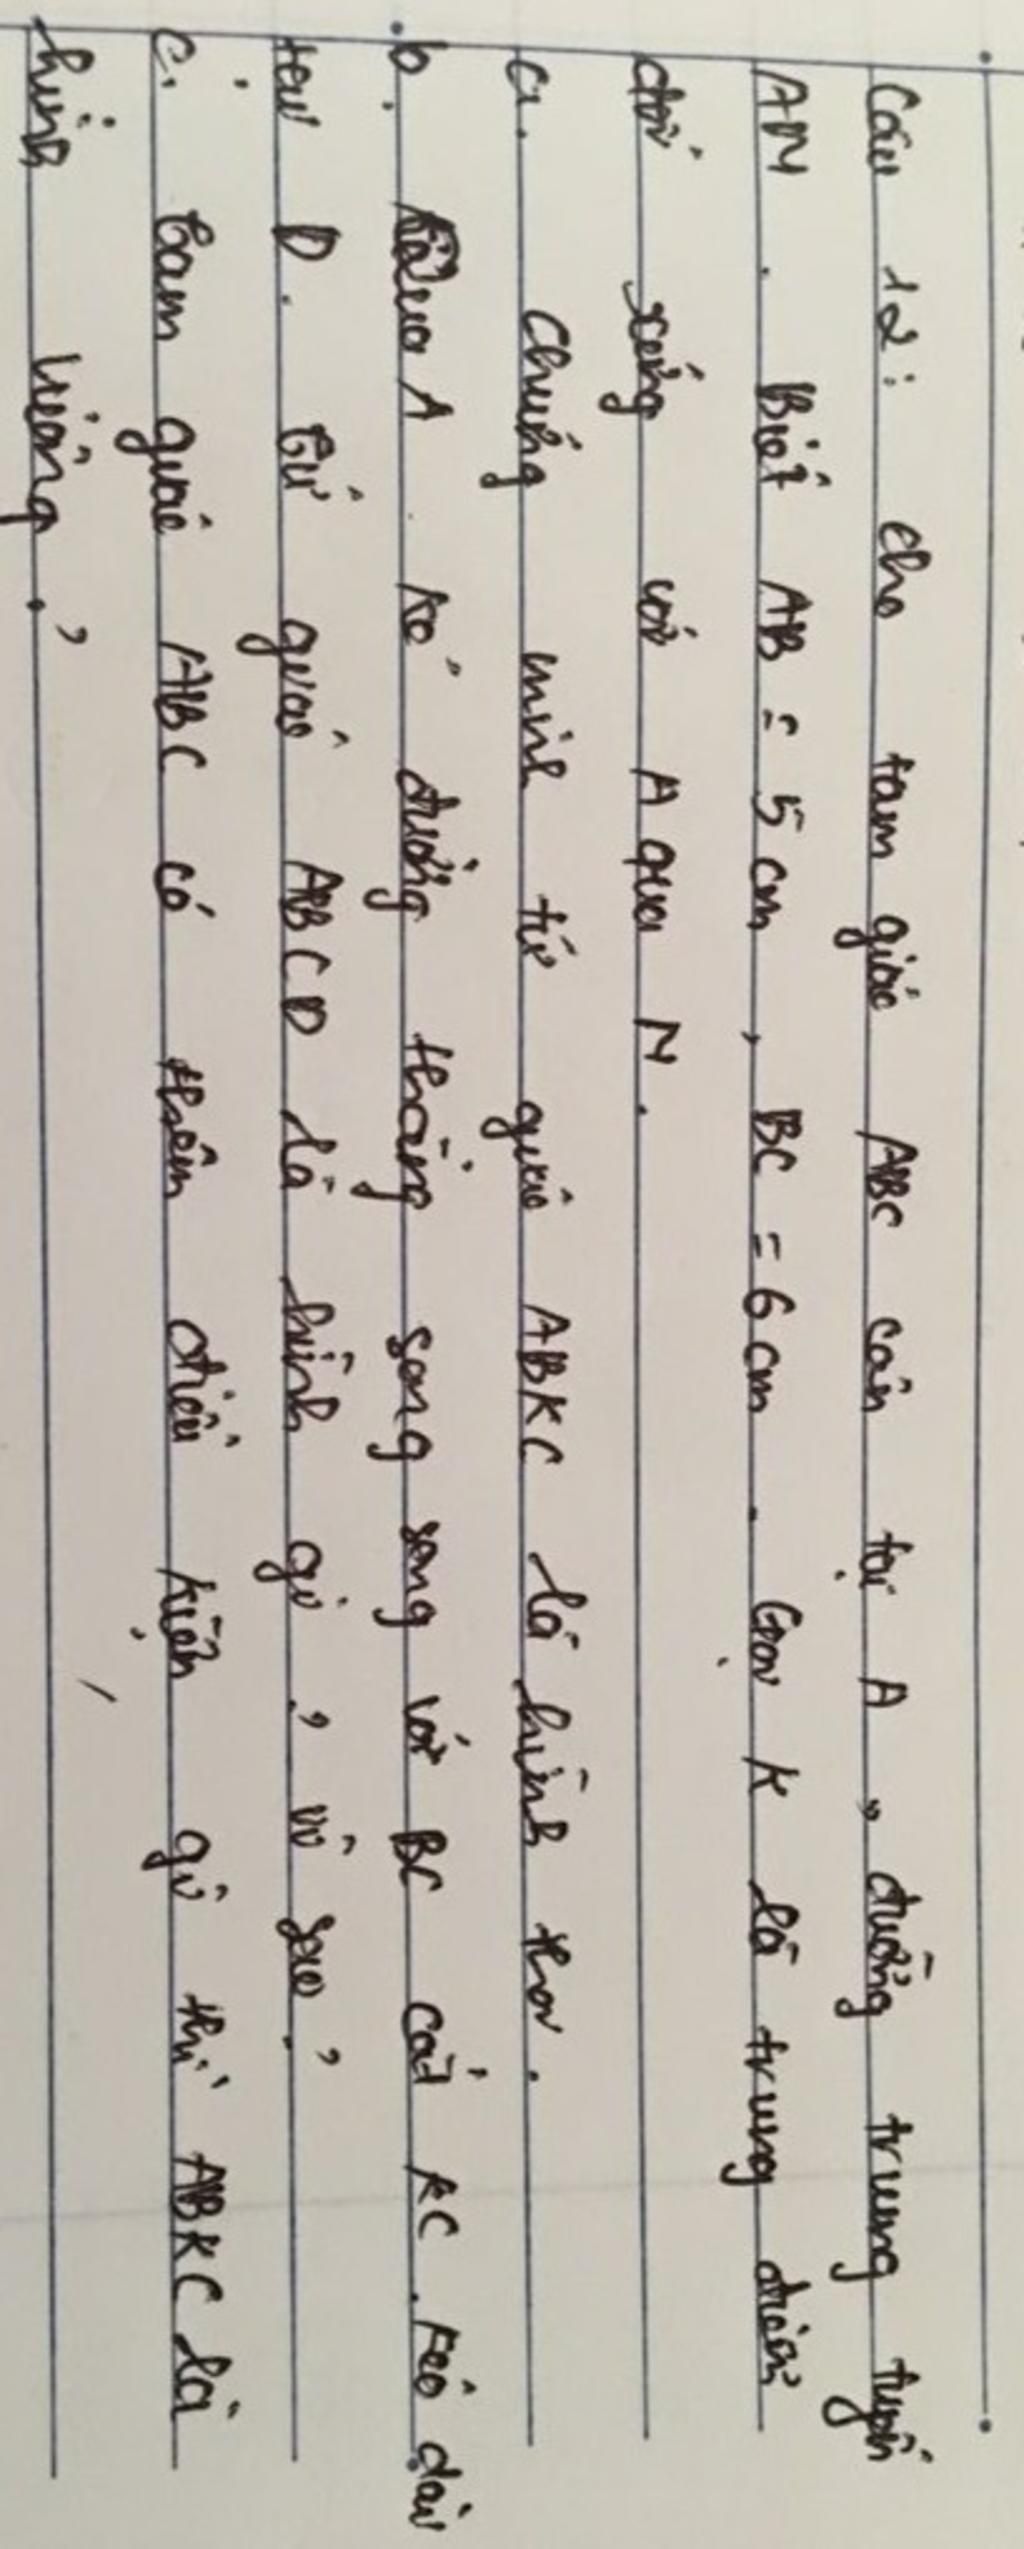 Câu 12: cho tam giác ABC cân tại A, đường trung tuyến
AM. Biết AB = 5 cm, BC = 6 cm. Gọi K là trung điểm
đối xứng với A qua M.
a. Chứng minh tứ giác ABKC là hình thoi.
b. Qua A kẻ đường thẳng song song với BC cắt KC kéo dài
tại D. Tứ giác ABCD là hình gì, vì sao?
c. Tam giác ABC có thêm điều kiện gì thì ABKC là
hình vuông?